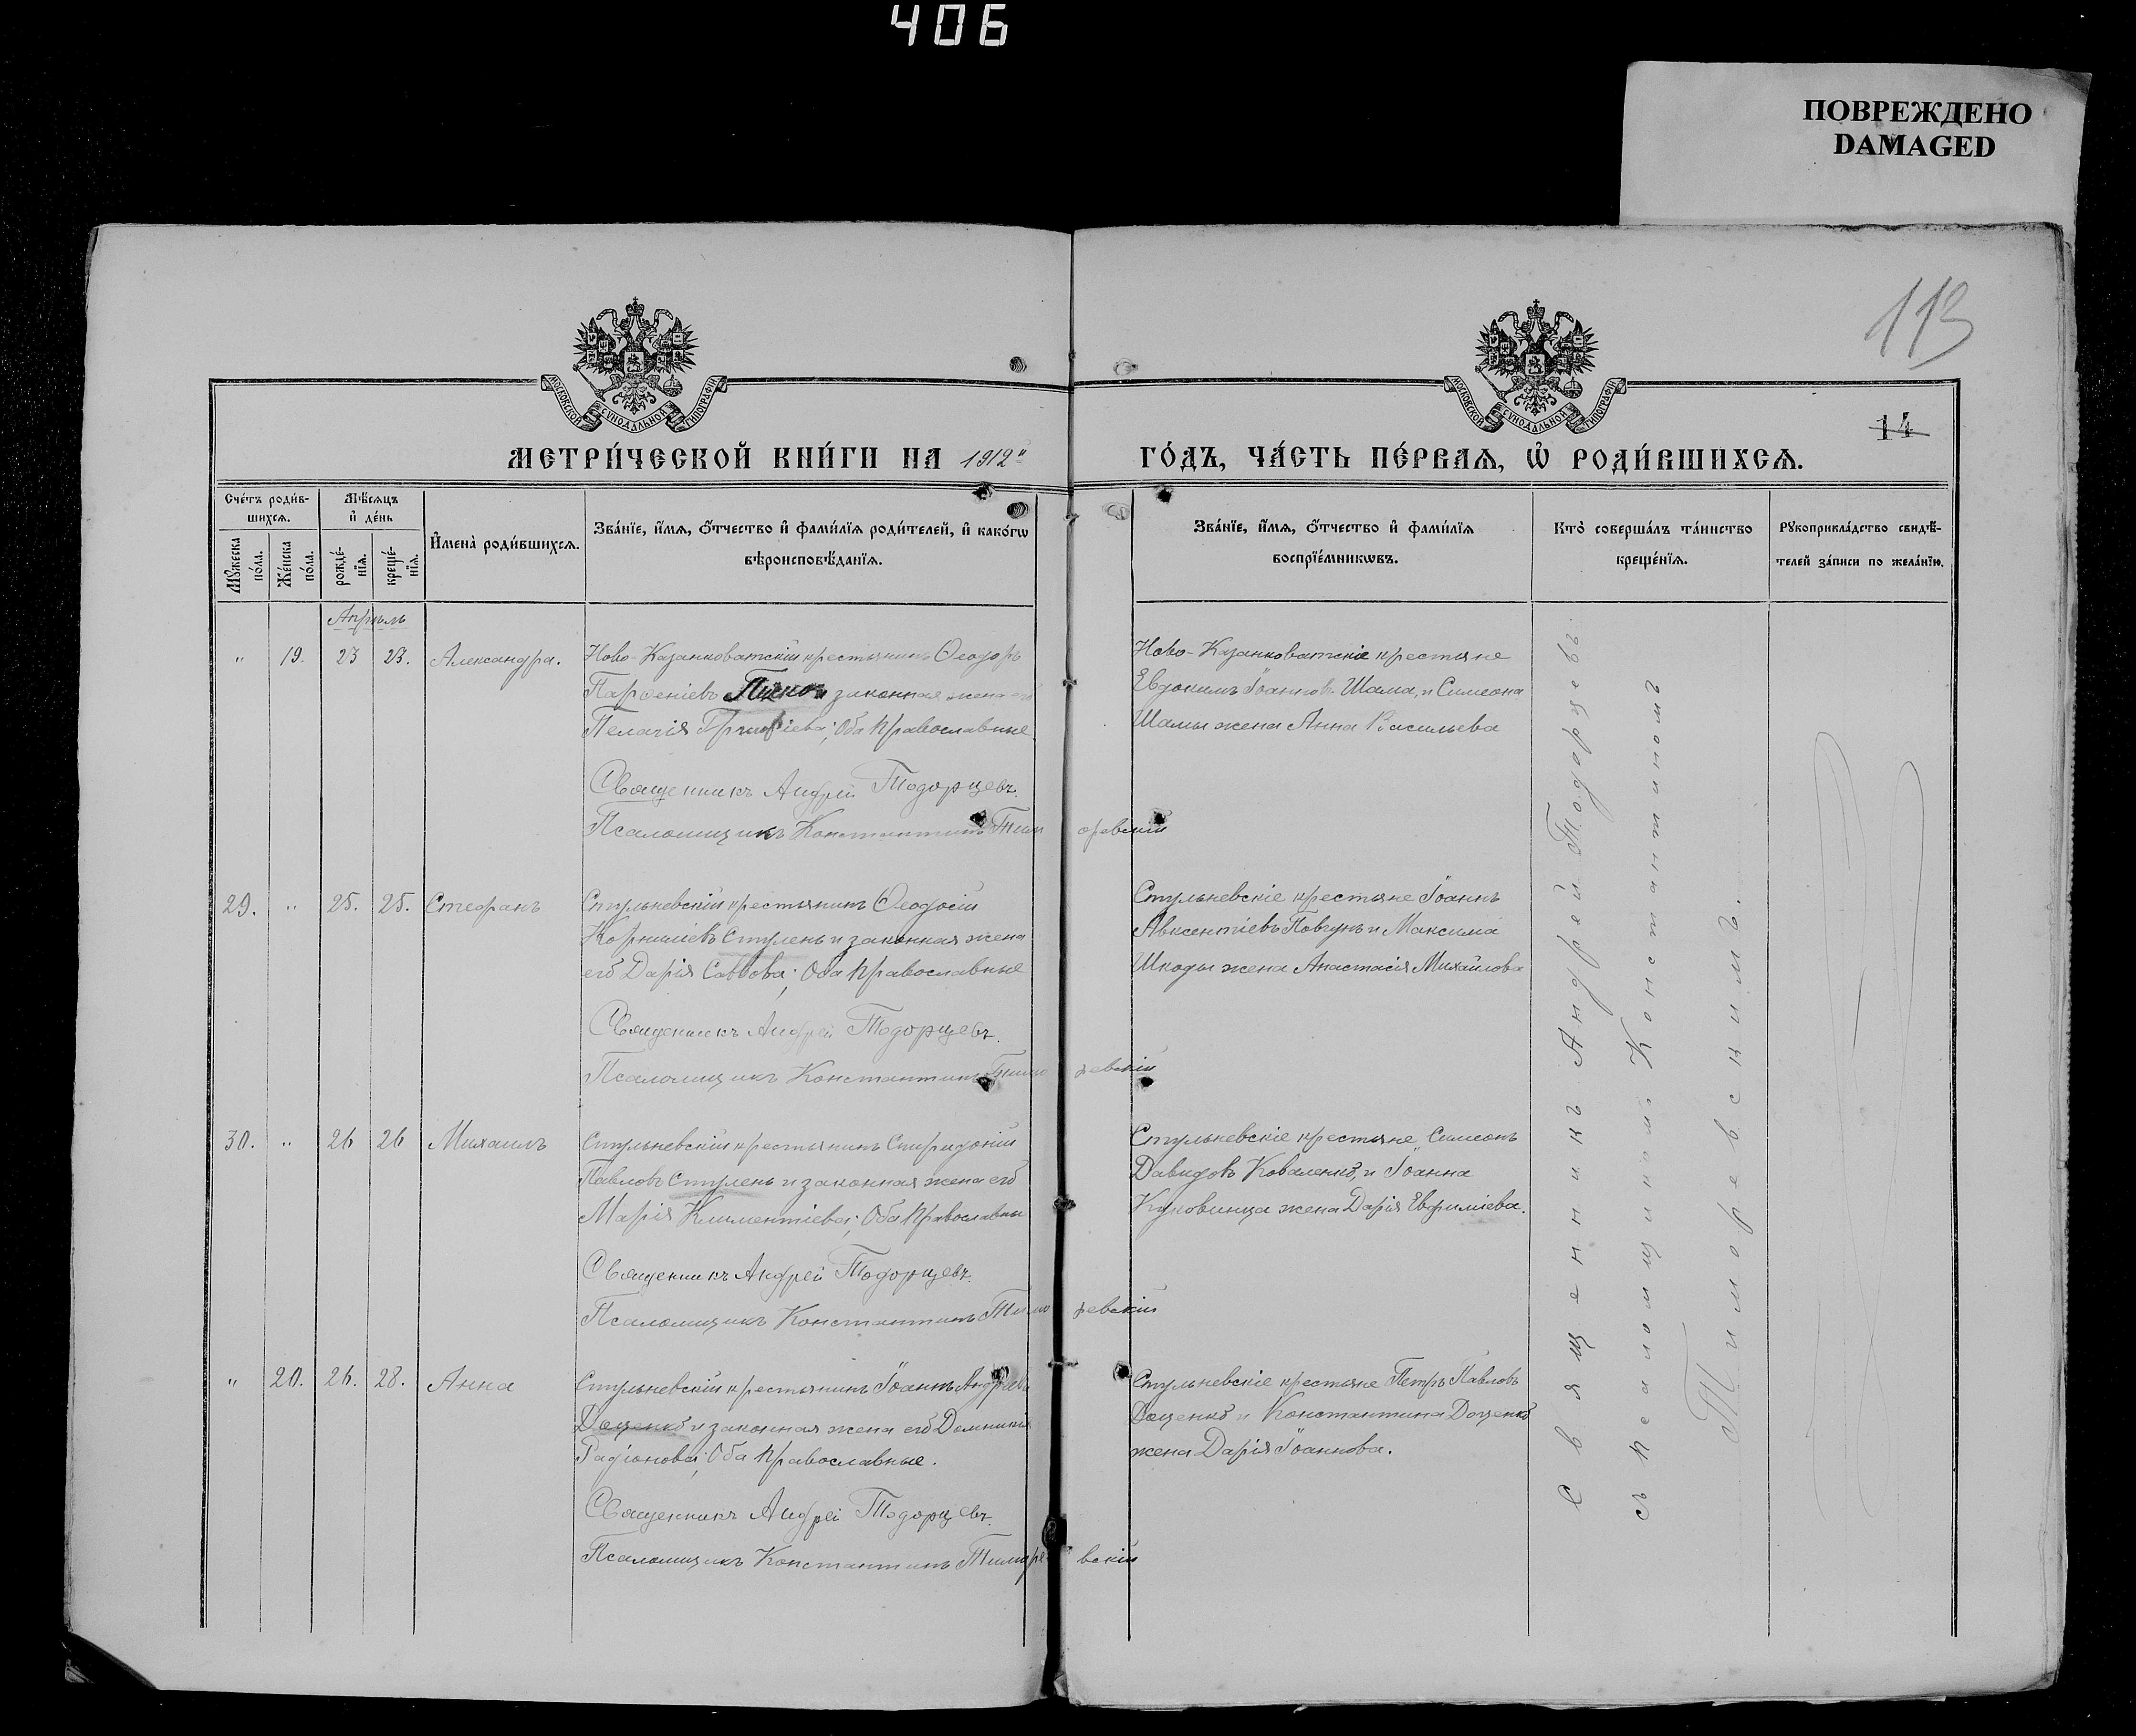 406
ПОВРЕЖДЕНО
DAMAGED
113
14
МОСКОВСКОЙ СѴНОДАЛЬНОЙ ТИПОГРАФІИ
МОСКОВСКОЙ СѴНОДАЛЬНОЙ ТИПОГРАФІИ
МЕТРИ́ЧЕСКОЙ КНИ́ГИ НА 1912"
ГО́ДЪ, ЧА́СТЬ ПЕ́РВАѦ, Ѽ РОДИ́ВШИХСѦ.
Сче́тъ роди́в-
шихсѧ.
Мꙋжеска по́ла.
Же́нска по́ла.
Мѣ́сѧцъ
и҆ де́нь
рожде́-нїѧ.
креще́-нїѧ.
И҆мена̀ роди́вшихсѧ.
Зва́нїе, и҆́мѧ, ѻ҆́тчество и҆ фами́лїѧ роди́телей, и҆ како́гѡ
вѣроисповѣ́данїѧ.
Зва́нїе, и҆́мѧ, ѻ҆́тчество и҆ фами́лїѧ
воспрїе́мникѡвъ.
Кто̀ соверша́лъ та́инство
креще́нїѧ.
Рꙋкоприкла́дство свидѣ́-
телей за́писи по жела́нїю.
Апрѣль
" 19. 23 23. Александра.
Ново-Казанковатскій крестьянинъ Ѳеодоръ
Парѳеніевъ и законная жена его
Пелагія ; Оба православные
Священникъ Андрей Тодорцевъ.
Псаломщикъ Константинъ Тиморевскій
Ново-Казанковатскіе крестьяне
Евдокимъ Іоанновъ Шама, и Симеона
Шамы жена Анна Васильева
29. " 25. 25. Стефанъ
Стульневскій крестьянинъ Ѳеодосій
Корниліевъ Стулень и законная жена
его Дарія Саввова; Оба православные
Священникъ Андрей Тодорцевъ.
Псаломщикъ Константинъ Тиморевскій
Стульневскіе крестьяне Іоаннъ
Авксентіевъ Повгунъ и Максима
Шкоды жена Анастасія Михайлова
30. " 26 26 Михаилъ
Стульневскій крестьянинъ Спиридоній
Павловъ Стулень и законная жена его
Марія Климентіева; Оба православны
Священникъ Андрей Тодорцевъ.
Псаломщикъ Константинъ Тиморевскій
Стульневскіе крестьяне Симеонъ
Давидовъ Коваленко, и Іоанна
Куковинца жена Дарія Евфиміева.
" 20. 26. 28. Анна
Стульневскій крестьянинъ Іоаннъ Андреевъ
Доценко и законная жена его Домникія
Радіонова; Оба православные.
Священникъ Андрей Тодорцевъ.
Псаломщикъ Константинъ Тиморевскій
Стульневскіе крестьяне Петръ Павловъ
Доценко и Константина Доценко
жена Дарія Іоаннова.
Священникъ Андрей Тодорцевъ
съ псаломщикомъ Константиномъ
Тиморевскимъ.